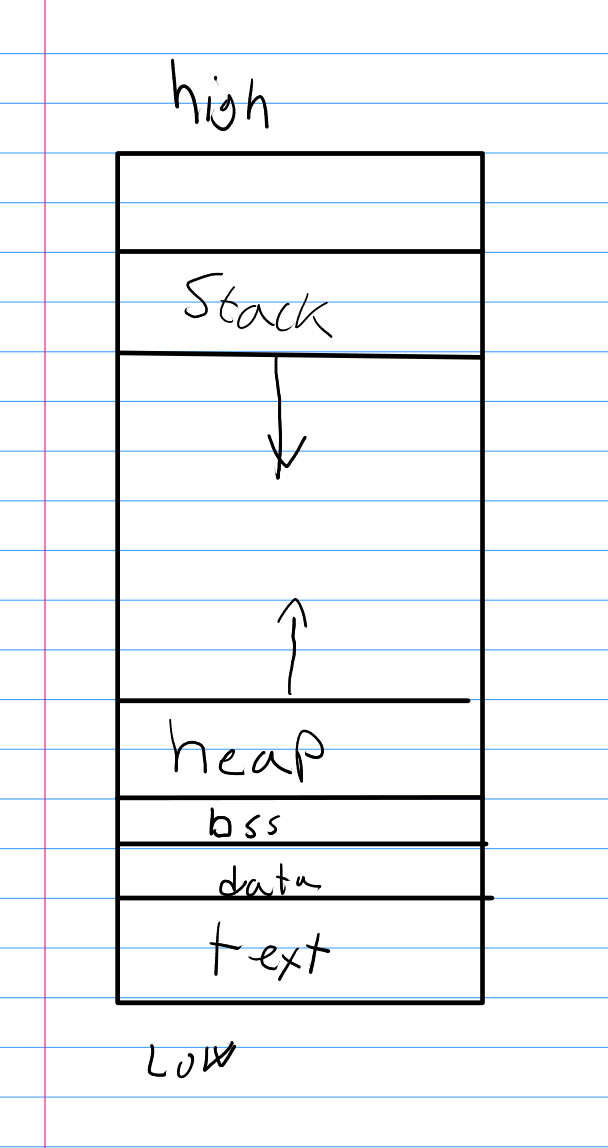 high
Stack
heap
bss
data
text
Low